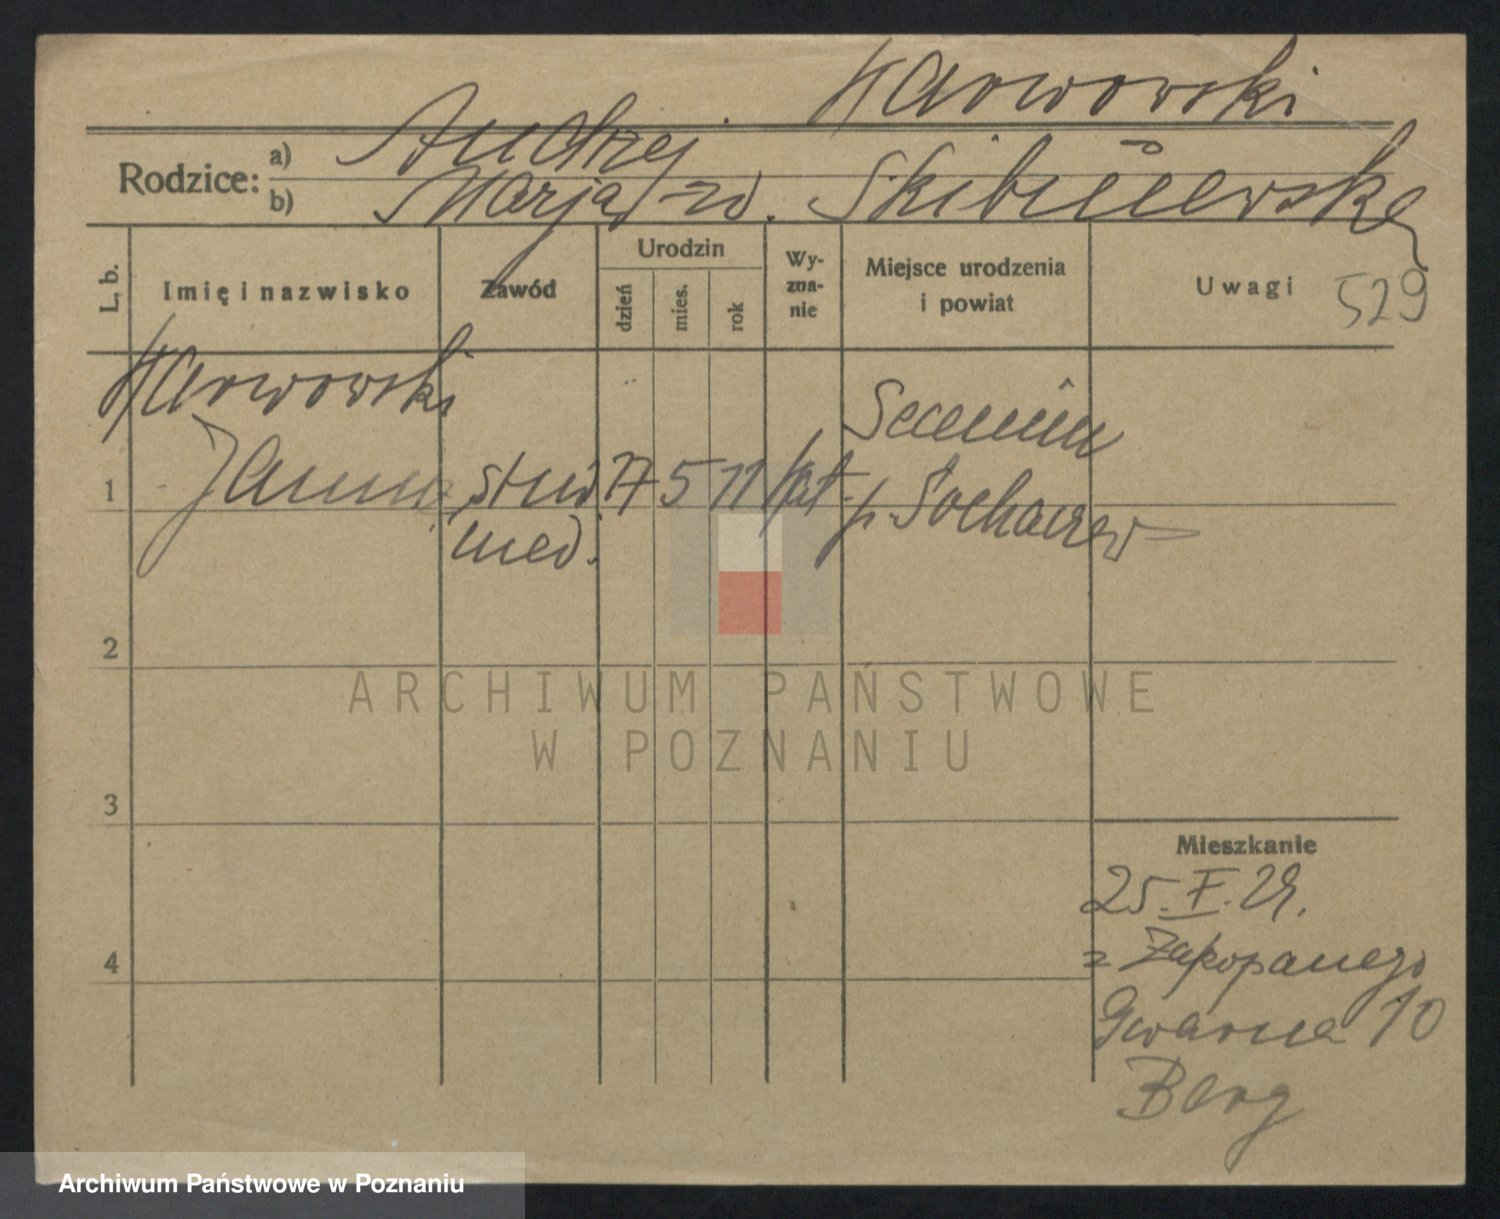 Karwowski
Rodzice: a) Andrzej
b) Marja z d. Skibniewska
L. b. Imię i nazwisko Zawód Urodzin dzień mies. rok Wy-zna-nie Miejsce urodzenia i powiat Uwagi 529
Karwowski
1 Janusz stud. 17 5 11 kat. Secemin
med. p. Sochaczew
2
ARCHIWUM PAŃSTWOWE
W POZNANIU
3
Mieszkanie
25. X. 29.
4 z Zakopanego
Gwarna 10
Berg
Archiwum Państwowe w Poznaniu